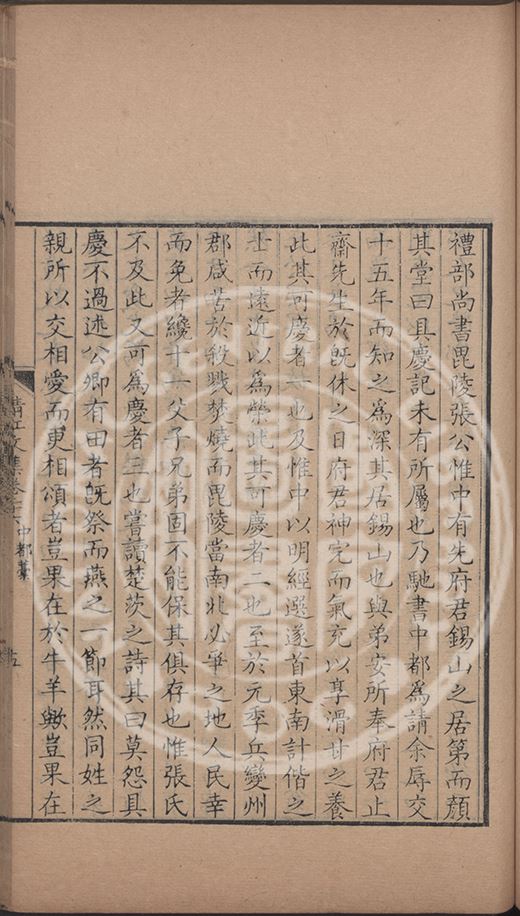 禮部尚書毘陵張公惟中有先府君錫山之居第而顏
其堂曰具慶記未有所屬也乃馳書中都爲請余辱交
十五年而知之爲深其居錫山也與弟安所奉府君止
齋先生於旣休之日府君神完而氣充以享滑甘之養
此其可慶者一也及惟中以明經選遂首東南計偕之
士而遠近以爲榮此其可慶者二也至於元季兵變州
郡咸苦於殺戮焚燒而毘陵當南北必爭之地人民幸
而免者纔十一父子兄弟固不能保其俱存也惟張氏
不及此又可爲慶者三也嘗讀楚茨之詩其曰莫怨具
慶不過述公卿有田者旣祭而燕之一節耳然同姓之
親所以交相愛而更相頌者豈果在於牛羊歟豈果在
清江文集卷十六 中都藁